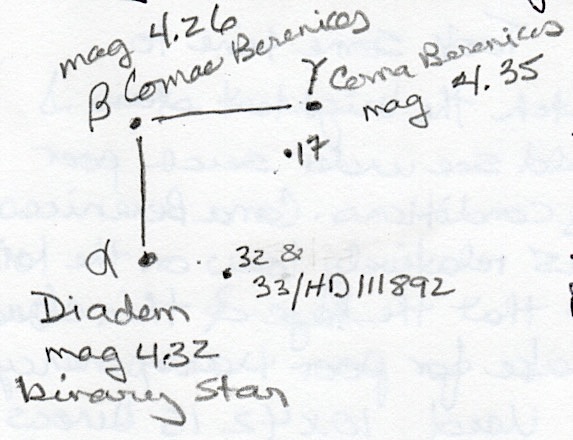 mag 4.26
β Comae Berenices
γ Coma Berenices
mag 4.35
.17
α
Diadem
mag 4.32
binary star
32 &
33/HD111892